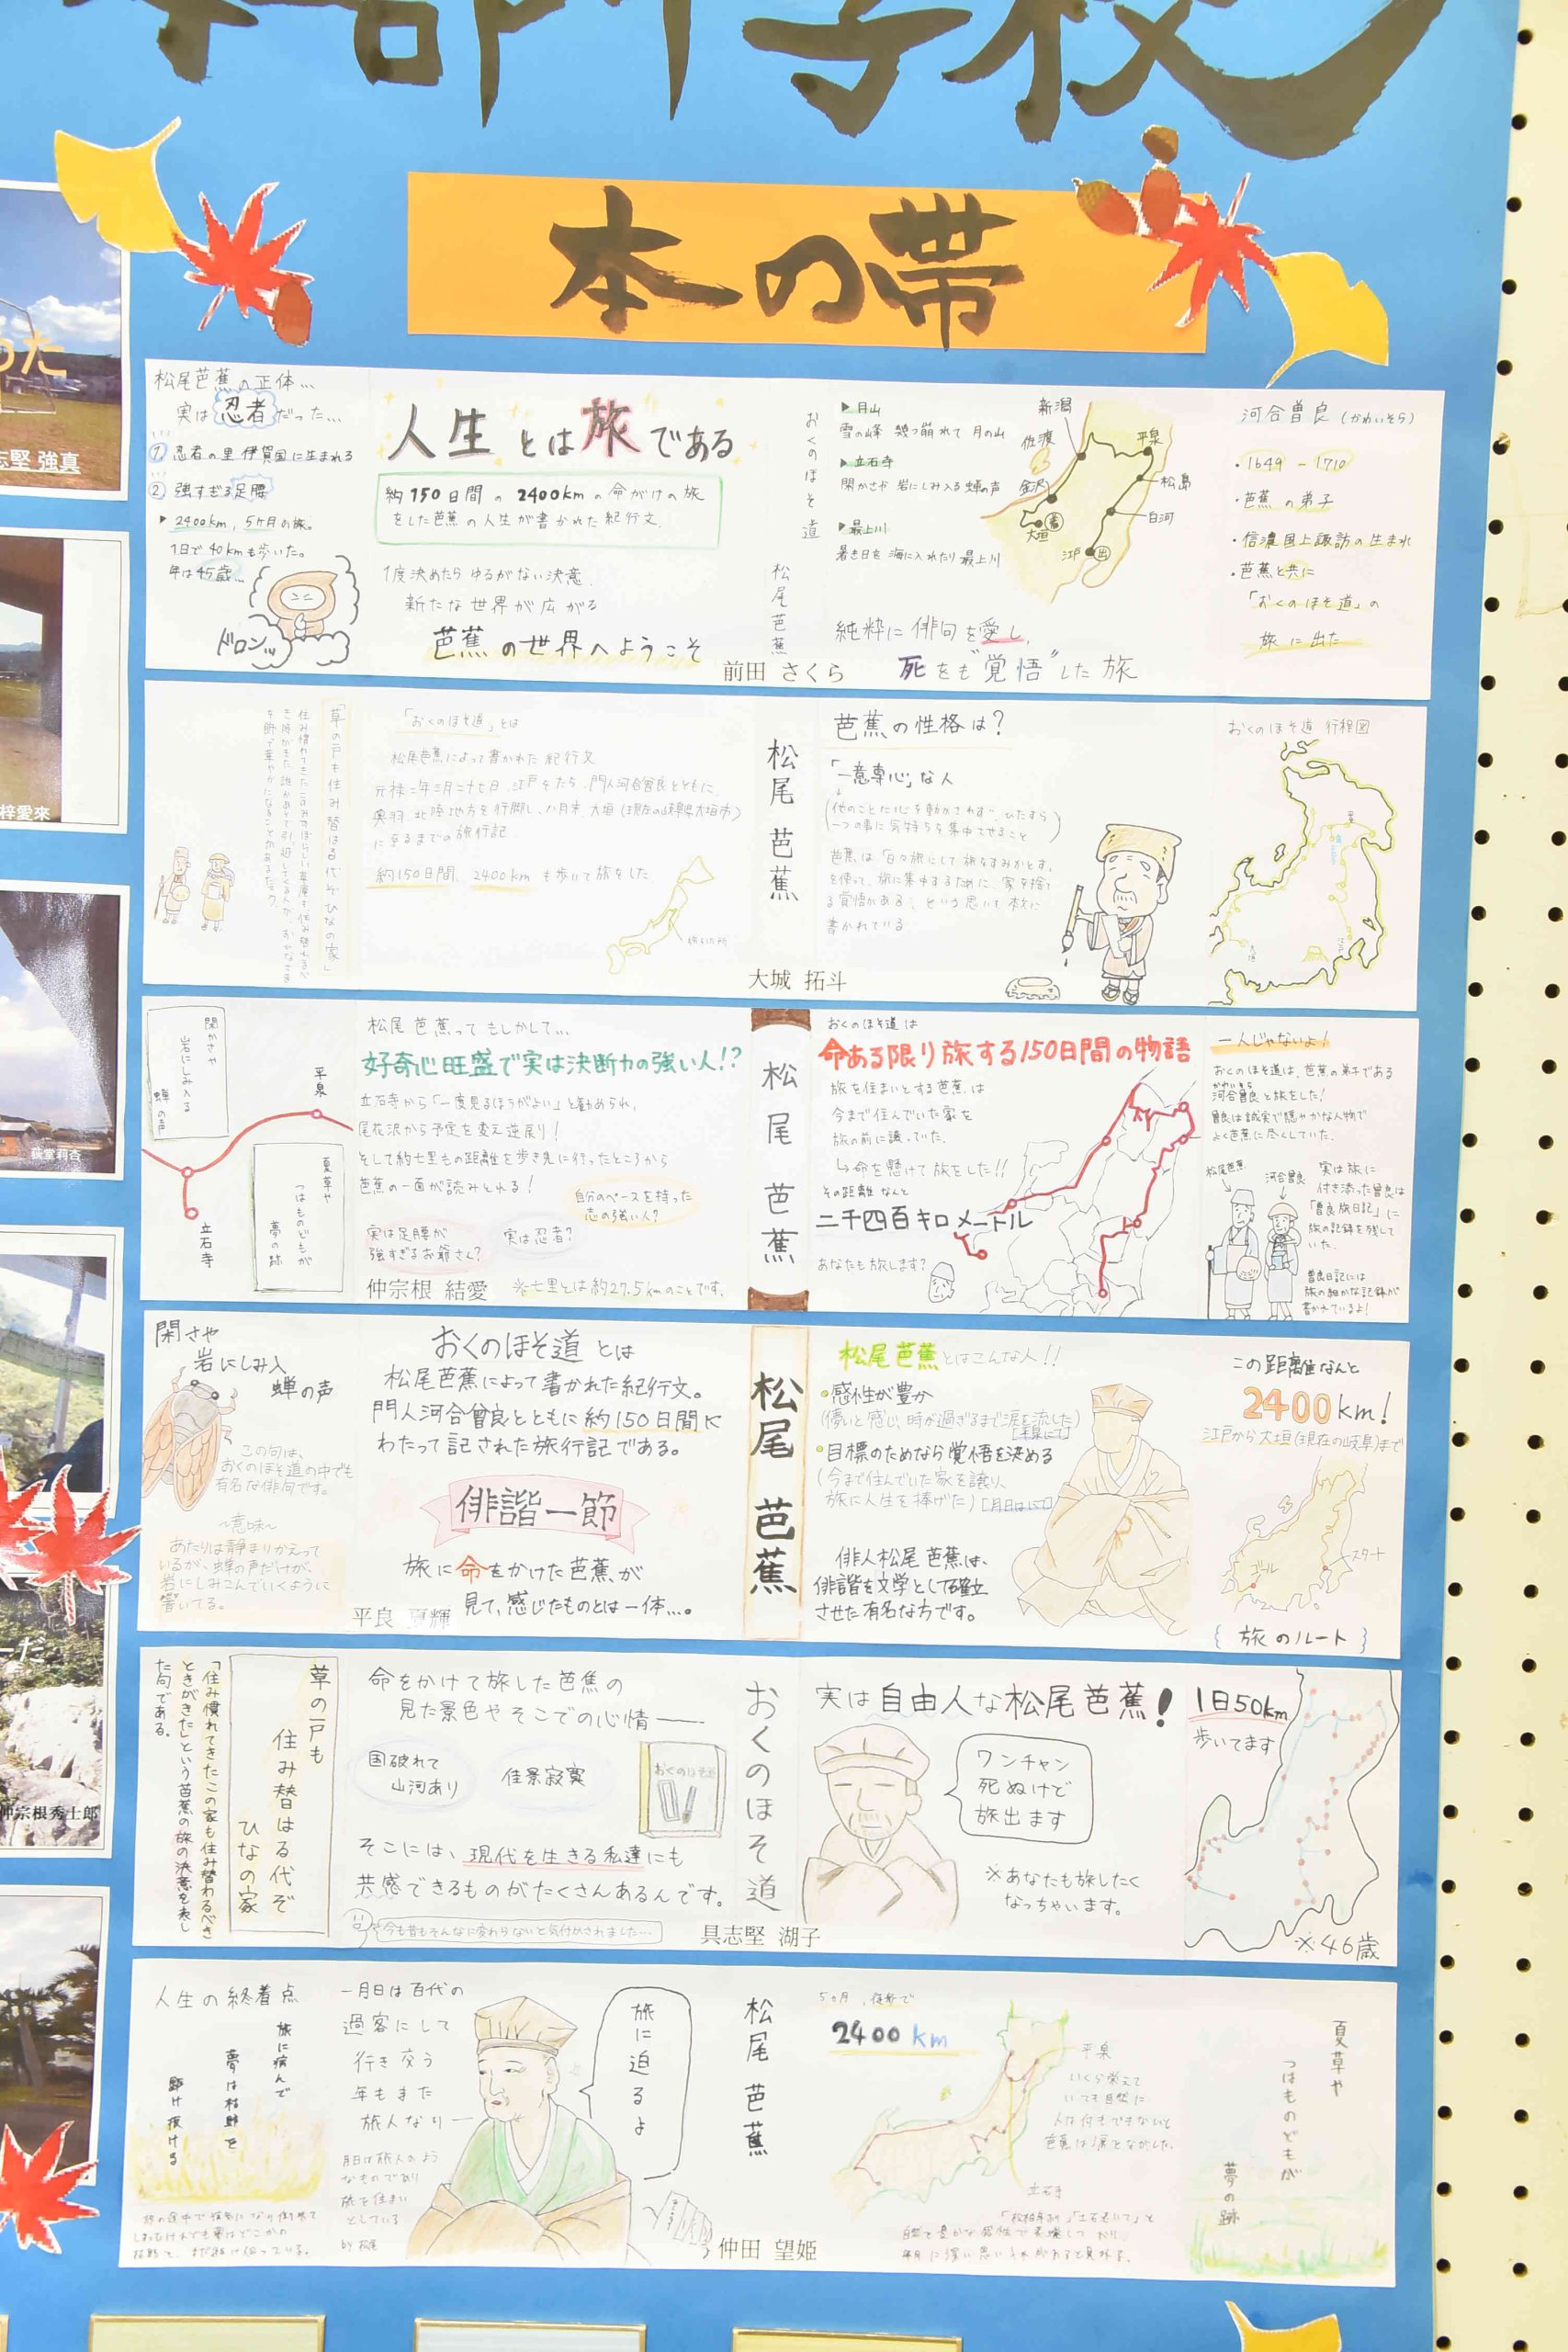 本の帯
松尾芭蕉の正体…
実は忍者だった…
① 忍者の里 伊賀国に生まれる
② 強すぎる足腰
▶ 2400km, 5ヶ月の旅。
1日で40kmも歩いた。
年は45歳…
ドロンッ
人生とは旅である
約150日間の2400kmの命がけの旅
をした芭蕉の人生が書かれた紀行文.
1度決めたらゆるがない決意.
新たな世界が広がる
芭蕉の世界へようこそ
おくのほそ道
松尾芭蕉
前田 さくら
▶月山
雪の峰 幾つ崩れて 月の山
▶立石寺
閑かさや 岩にしみ入る 蝉の声
▶最上川
暑き日を 海に入れたり 最上川
新潟
佐渡
金沢
大垣
平泉
松島
白河
江戸
純粋に俳句を愛し,
死をも"覚悟"した旅
河合曽良 (かわいそら)
・1649 - 1710
・芭蕉の弟子
・信濃国上諏訪の生まれ
・芭蕉と共に
「おくのほそ道」の
旅に出た
「草の戸も住み替はる代ぞひなの家」
「おくのほそ道」とは
松尾芭蕉によって書かれた紀行文
元禄二年三月二十七日、江戸をたち、門人河合曾良とともに、
奥羽、北陸地方を行脚し、八月末、大垣(現在の岐阜県大垣市)
に至るまでの旅行記
約150日間、2400kmも歩いて旅をした
松尾芭蕉
大城 拓斗
芭蕉の性格は?
「一意専心」な人
(他のことに心を動かされず、ひたすら
一つの事に気持ちを集中させること)
芭蕉は「日々旅にして旅をすみかとす」
を使って、旅に集中するために、家を捨て
る覚悟がある、という思いも本文に
書かれている
おくのほそ道 行程図
閑かさや
岩にしみ入る
蝉の声
平泉
夏草や
つはものどもが
夢の跡
立石寺
松尾芭蕉ってもしかして…
好奇心旺盛で実は決断力の強い人!?
立石寺から「一度見るほうがよい」と勧められ,
尾花沢から予定を変え逆戻り!
そして約七里もの距離を歩き見に行ったところから
芭蕉の一面が読みとれる!
自分のペースを持った
志の強い人?
実は足腰が
強すぎるお爺さん?
実は忍者?
仲宗根 結愛
※七里とは約27.5kmのことです。
松尾芭蕉
おくのほそ道は
命ある限り旅する150日間の物語
旅を住まいとする芭蕉は
今まで住んでいた家を
旅の前に譲っていた。
↳命を懸けて旅をした!!
その距離なんと
二千四百キロメートル
あなたも旅します?
一人じゃないよ!
おくのほそ道は、芭蕉の弟子である
河合曽良と旅をした!
曽良は誠実で穏やかな人物で
よく芭蕉に尽くしていた。
松尾芭蕉
河合曽良
実は旅に
付き添った曽良は
「曽良旅日記」に
旅の記録を残して
いた。
曽良日記には
旅の細かな記録が
書かれているよ!
閑さや
岩にしみ入
蝉の声
この句は、
おくのほそ道の中でも
有名な俳句です。
～意味～
あたりは静まりかえって
いるが、蝉の声だけが、
岩にしみこんでいくように
響いてる。
おくのほそ道とは
松尾芭蕉によって書かれた紀行文。
門人河合曾良とともに約150日間に
わたって記された旅行記である。
俳諧一節
旅に命をかけた芭蕉が
見て、感じたものとは一体…。
平良
松尾 芭蕉
松尾芭蕉とはこんな人!!
・感性が豊か
(儚いと感じ、時が過ぎるまで涙を流した)
[平泉にて]
・目標のためなら覚悟を決める
(今まで住んでいた家を譲り、
旅に人生を捧げた)
俳人松尾芭蕉は、
俳諧を文学として確立
させた有名な方です。
この距離なんと
2400km!
江戸から大垣(現在の岐阜)まで
スタート
ゴール
{旅のルート}
草の戸も
住み替はる代ぞ
ひなの家
「住み慣れてきたこの家も住み替わるべき
ときがきた」という芭蕉の旅の決意を表し
た句である。
命をかけて旅した芭蕉の
見た景色やそこでの心情――
国破れて
山河あり
佳景寂寞
おくのほそ道
そこには、現代を生きる私達にも
共感できるものがたくさんあるんです。
今も昔もそんなに変わらないと気付かされました…
おくのほそ道
具志堅 湖子
実は自由人な松尾芭蕉!
ワンチャン
死ぬけど
旅出ます
※あなたも旅したく
なっちゃいます。
1日50km
歩いてます
※46歳
人生の終着点
旅に病んで
夢は枯野を
駆け抜ける
一月日は百代の
過客にして
行き交う
年もまた
旅人なり一
月日は旅人のよ
うなものであり
旅を住まい
としている
旅に迫るよ
松尾芭蕉
仲田 望姫
5カ月、徒歩で
2400km
平泉
いくら栄えて
いても自然に
人は何もできないと
芭蕉は涙をながした。
立石寺
夏草や
つはものどもが
夢の跡
志堅 強真
梓愛來
荻堂莉杏
仲宗根秀士郎